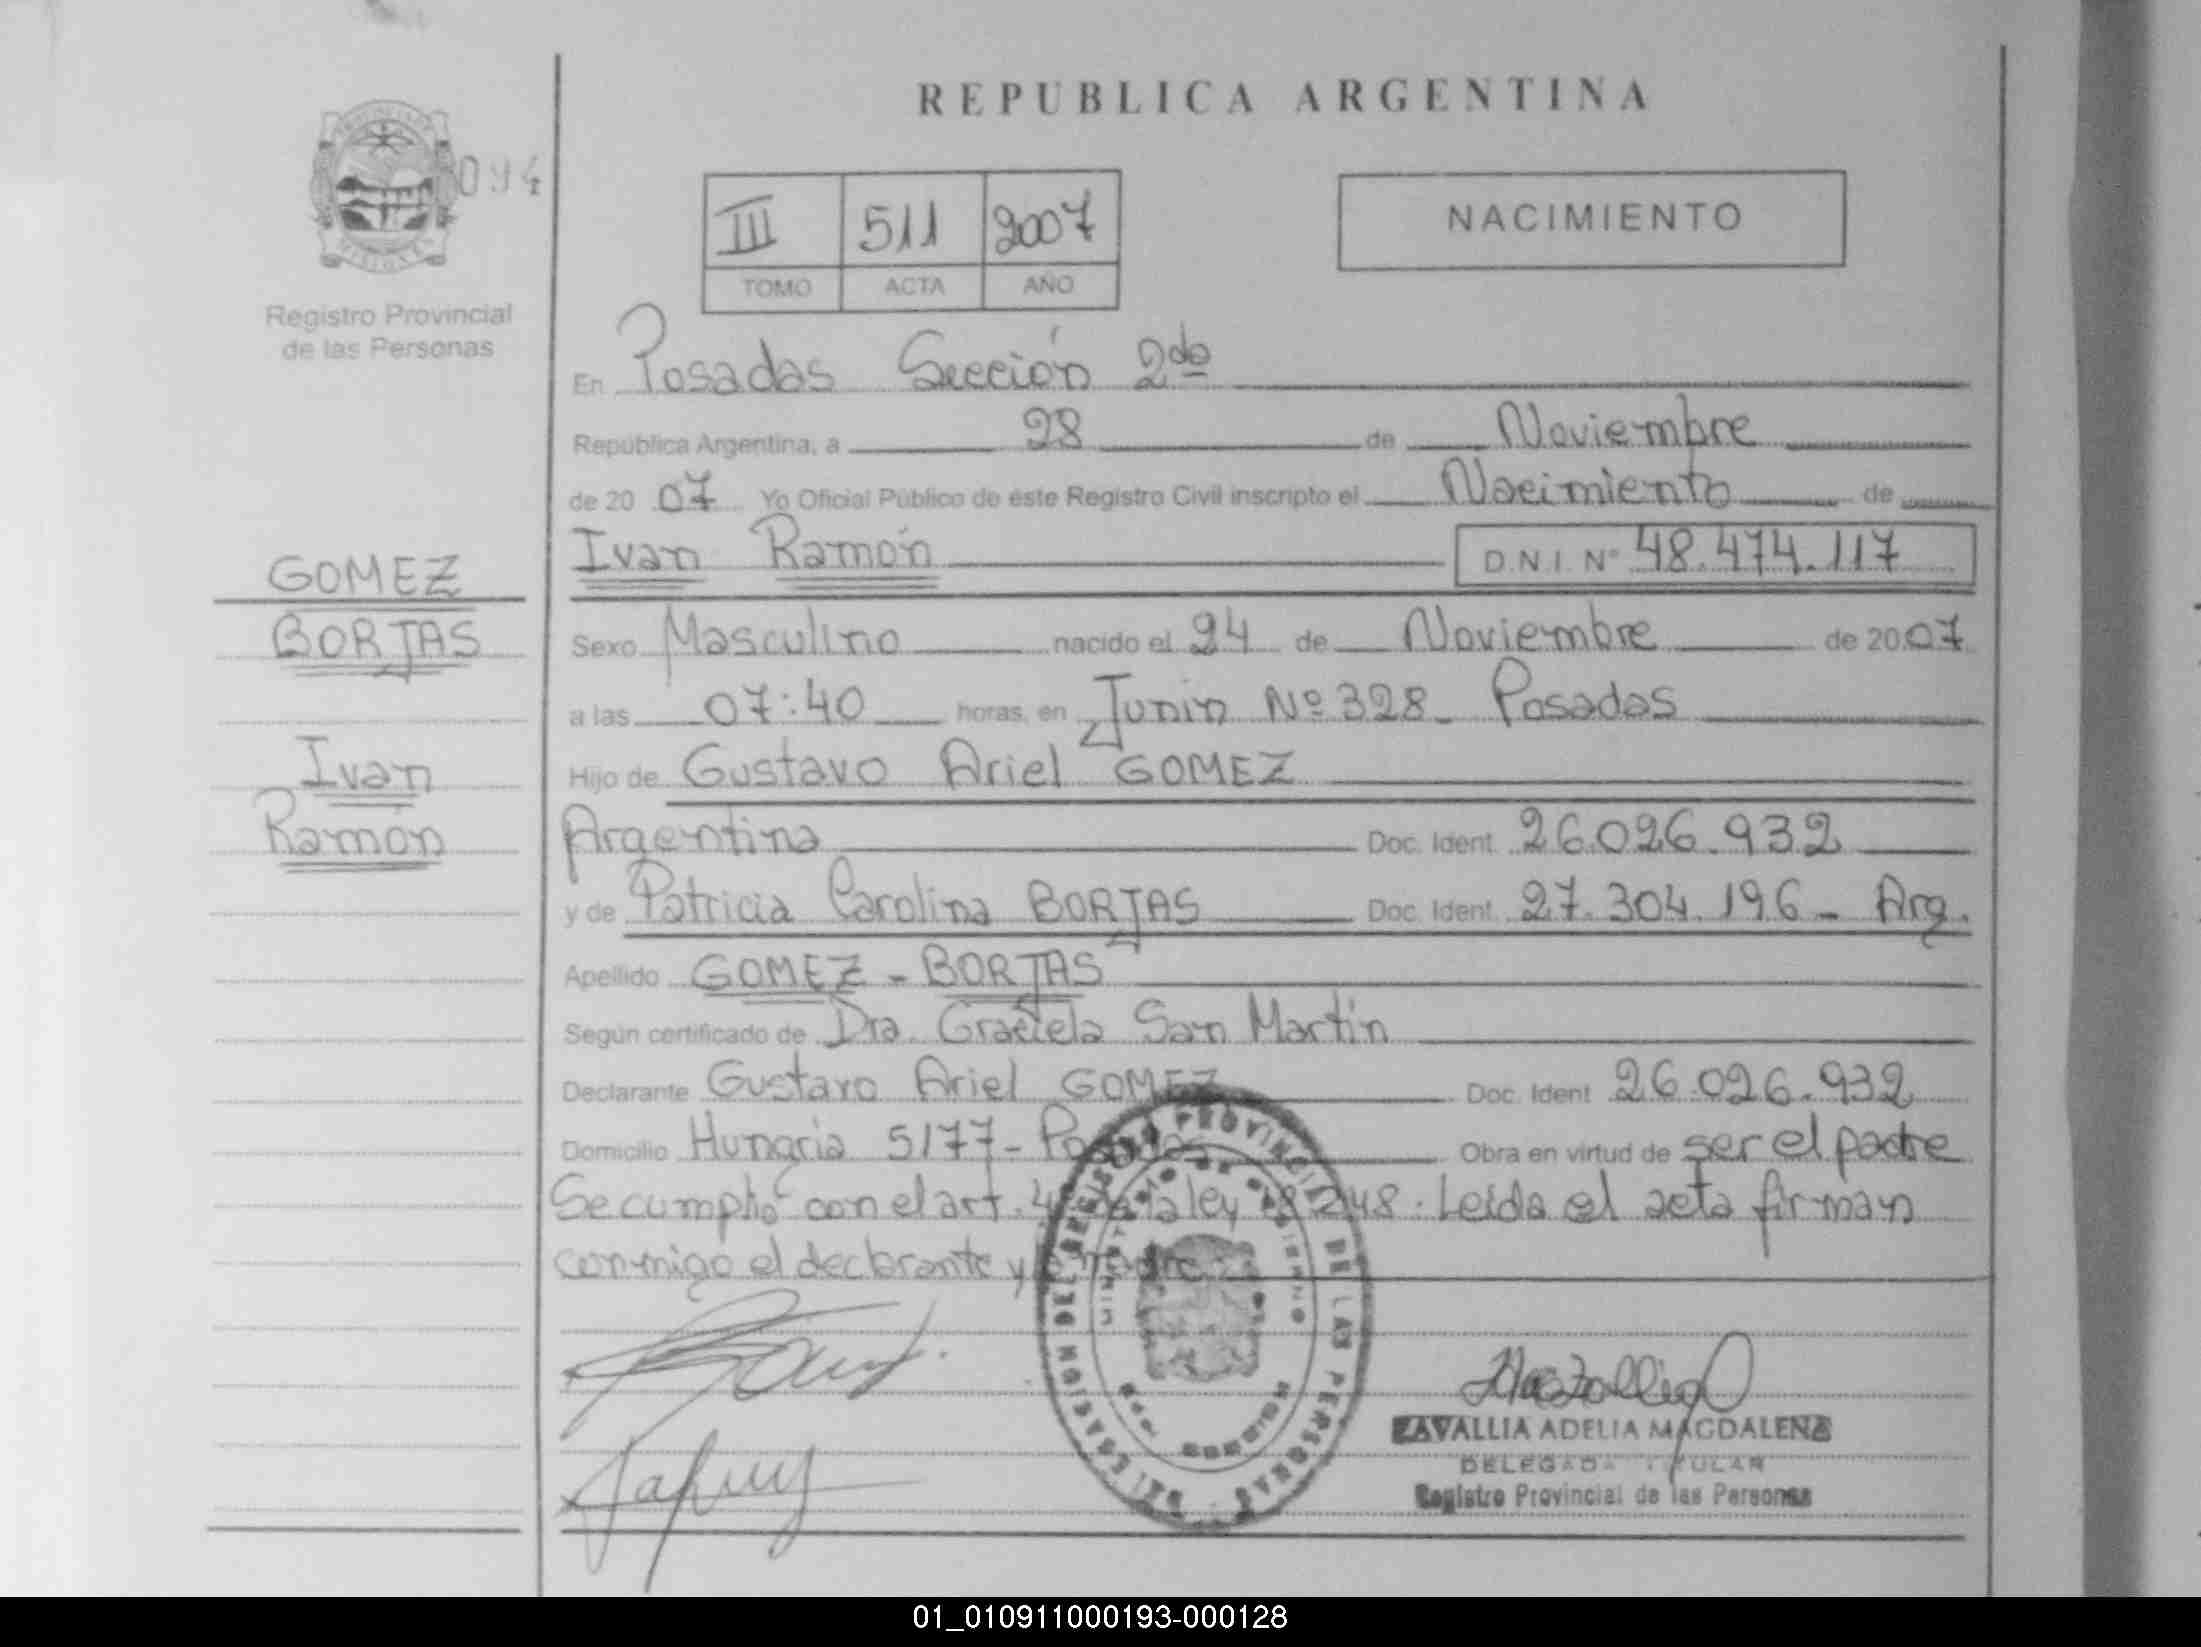 REPUBLICA ARGENTINA
094
III 511 2007
TOMO ACTA AÑO
NACIMIENTO
Registro Provincial
de las Personas
En Posadas Sección 2da
República Argentina, a 28 de Noviembre
de 20 07 Yo Oficial Público de éste Registro Civil inscripto el Nacimiento de
Ivan Ramón D.N.I. Nº 48.474.117
GOMEZ
BORJAS
Ivan
Ramón
Sexo Masculino nacido el 24 de Noviembre de 20 07
a las 07:40 horas, en Junin Nº 328 - Posadas
Hijo de Gustavo Ariel GOMEZ
Argentina Doc. Ident. 26.026.932
y de Patricia Carolina BORJAS Doc. Ident. 27.304.196 - Arg.
Apellido GOMEZ - BORJAS
Según certificado de Dra. Graciela San Martin
Declarante Gustavo Ariel GOMEZ Doc. Ident. 26.026.932
Domicilio Hungria 5177 - Posadas Obra en virtud de ser el padre
Se cumplió con el art. 4 ley 18248. Leida el acta firman
conmigo el declarante y
DELEGACION DEL REGISTRO PROVINCIAL DE LAS PERSONAS
MINISTERIO DE GOBIERNO
ZAVALLIA ADELIA MAGDALENA
DELEGADA TITULAR
Registro Provincial de las Personas
01_010911000193-000128